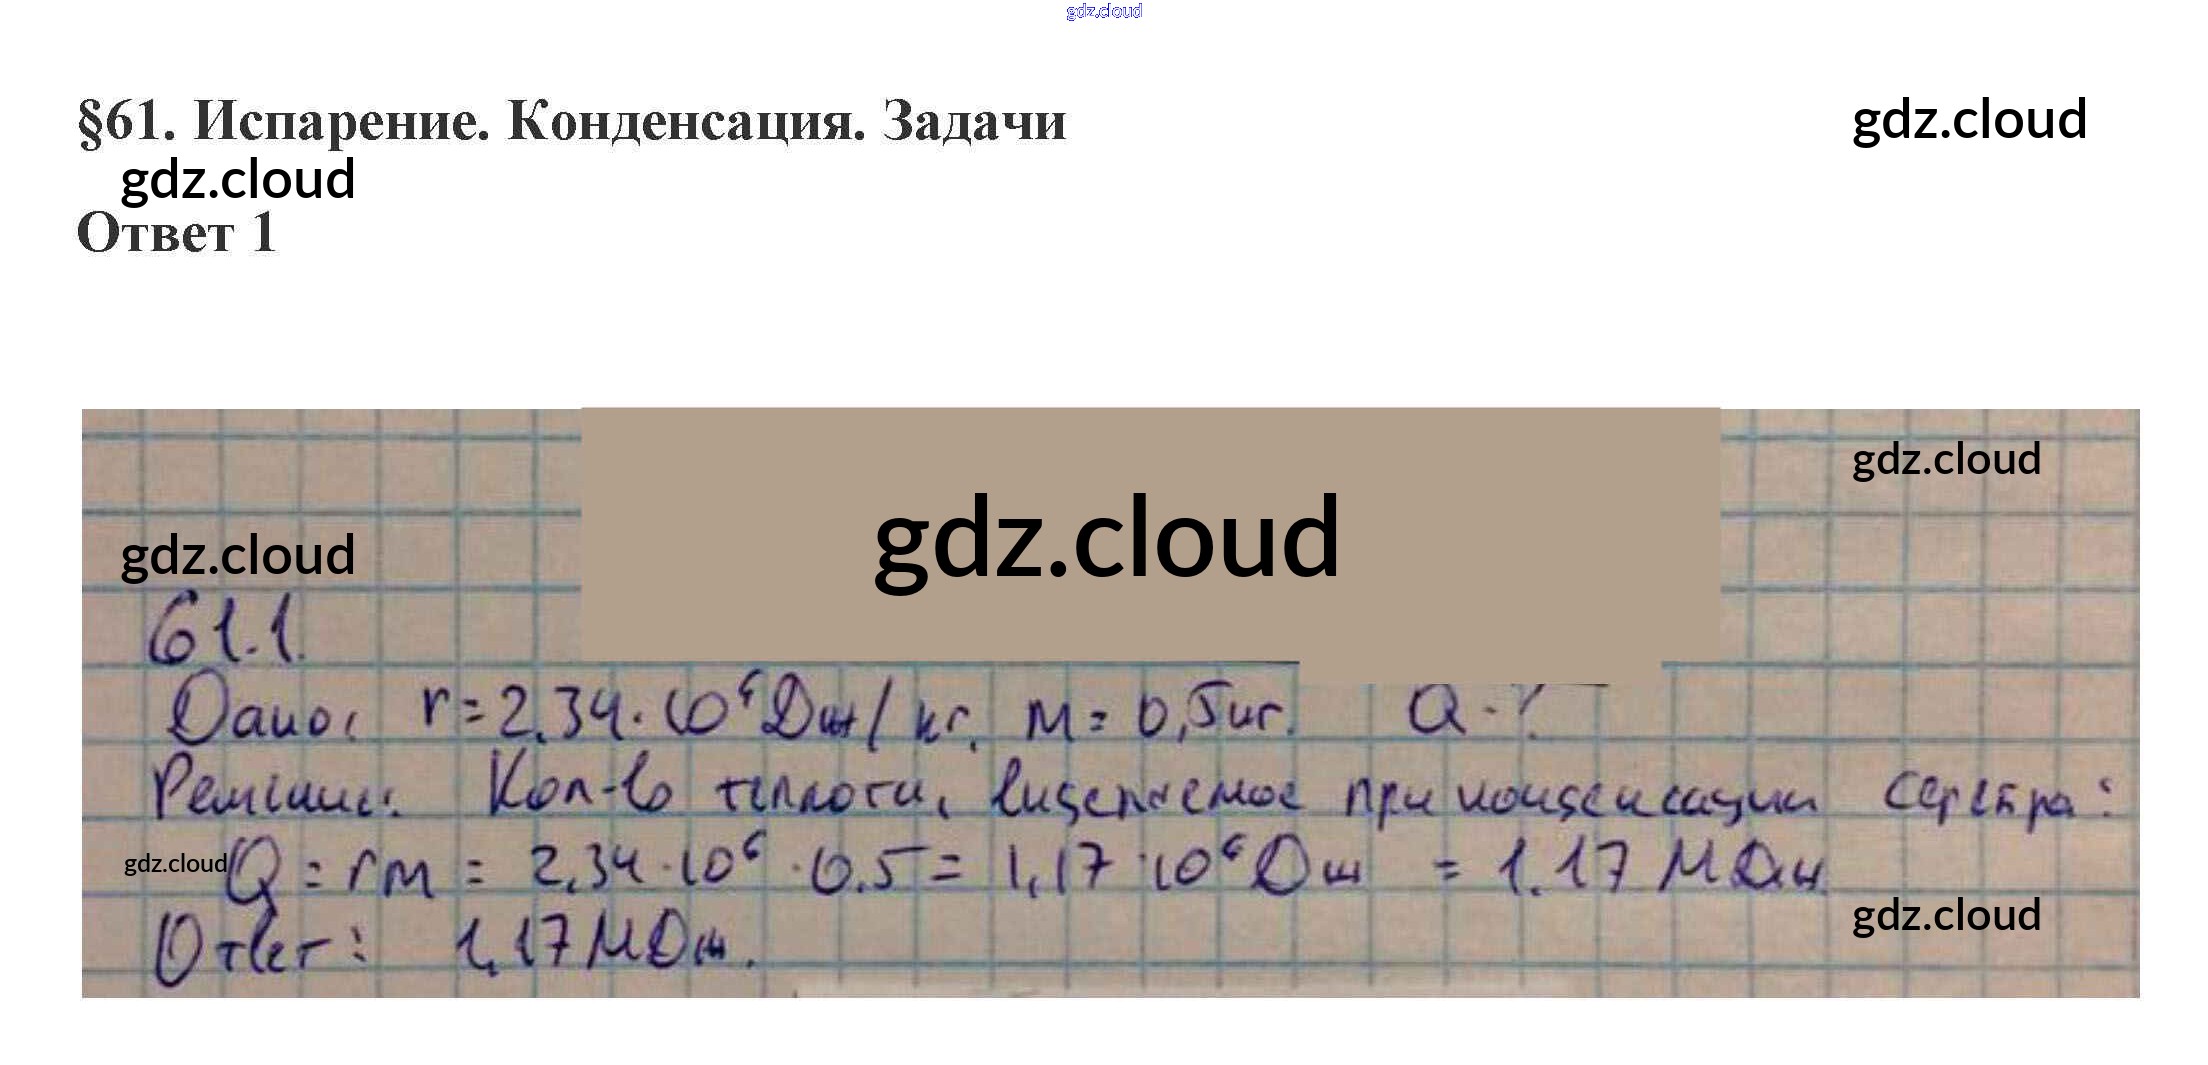 gdz.cloud
§61. Испарение. Конденсация. Задачи
gdz.cloud
gdz.cloud
Ответ 1
gdz.cloud
gdz.cloud
gdz.cloud
61.1.
Дано: r = 2,34 · 10⁶ Дж/кг, m = 0,5 кг. Q - ?
Решение: Кол-во теплоты, выделяемое при конденсации серебра:
gdz.cloud
Q = rm = 2,34 · 10⁶ · 0.5 = 1,17 · 10⁶ Дж = 1.17 МДж
gdz.cloud
Ответ: 1,17 МДж.